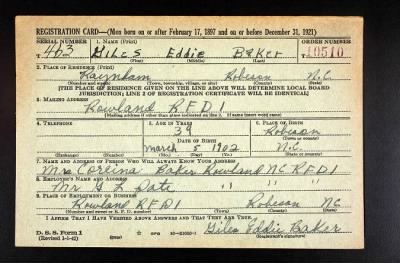 REGISTRATION CARD—(Men born on or after February 17, 1897 and on or before December 31, 1921)
SERIAL NUMBER 1. NAME (Print) ORDER NUMBER
T 463 Giles Eddie Baker 10510
(First) (Middle) (Last)
2. PLACE OF RESIDENCE (Print)
Raynham Robeson N.C.
(Number and street) (Town, township, village, or city) (County) (State)
[THE PLACE OF RESIDENCE GIVEN ON THE LINE ABOVE WILL DETERMINE LOCAL BOARD
JURISDICTION; LINE 2 OF REGISTRATION CERTIFICATE WILL BE IDENTICAL]
3. MAILING ADDRESS
Rowland R.F.D 1
[Mailing address if other than place indicated on line 2. If same insert word same]
4. TELEPHONE 5. AGE IN YEARS 6. PLACE OF BIRTH
39 Robeson
DATE OF BIRTH (Town or county)
March 5 1902 N.C.
(Exchange) (Number) (Mo.) (Day) (Yr.) (State or country)
7. NAME AND ADDRESS OF PERSON WHO WILL ALWAYS KNOW YOUR ADDRESS
Mrs Baker Rowland NC R.F.D 1
8. EMPLOYER'S NAME AND ADDRESS
Mr G L Pate " " "
9. PLACE OF EMPLOYMENT OR BUSINESS
Rowland R.F.D 1 Robeson NC
(Number and street or R. F. D. number) (Town) (County) (State)
I AFFIRM THAT I HAVE VERIFIED ABOVE ANSWERS AND THAT THEY ARE TRUE.
D. S. S. Form 1
(Revised 1-1-42) (over) GPO Giles Eddie Baker
(Registrant's signature)